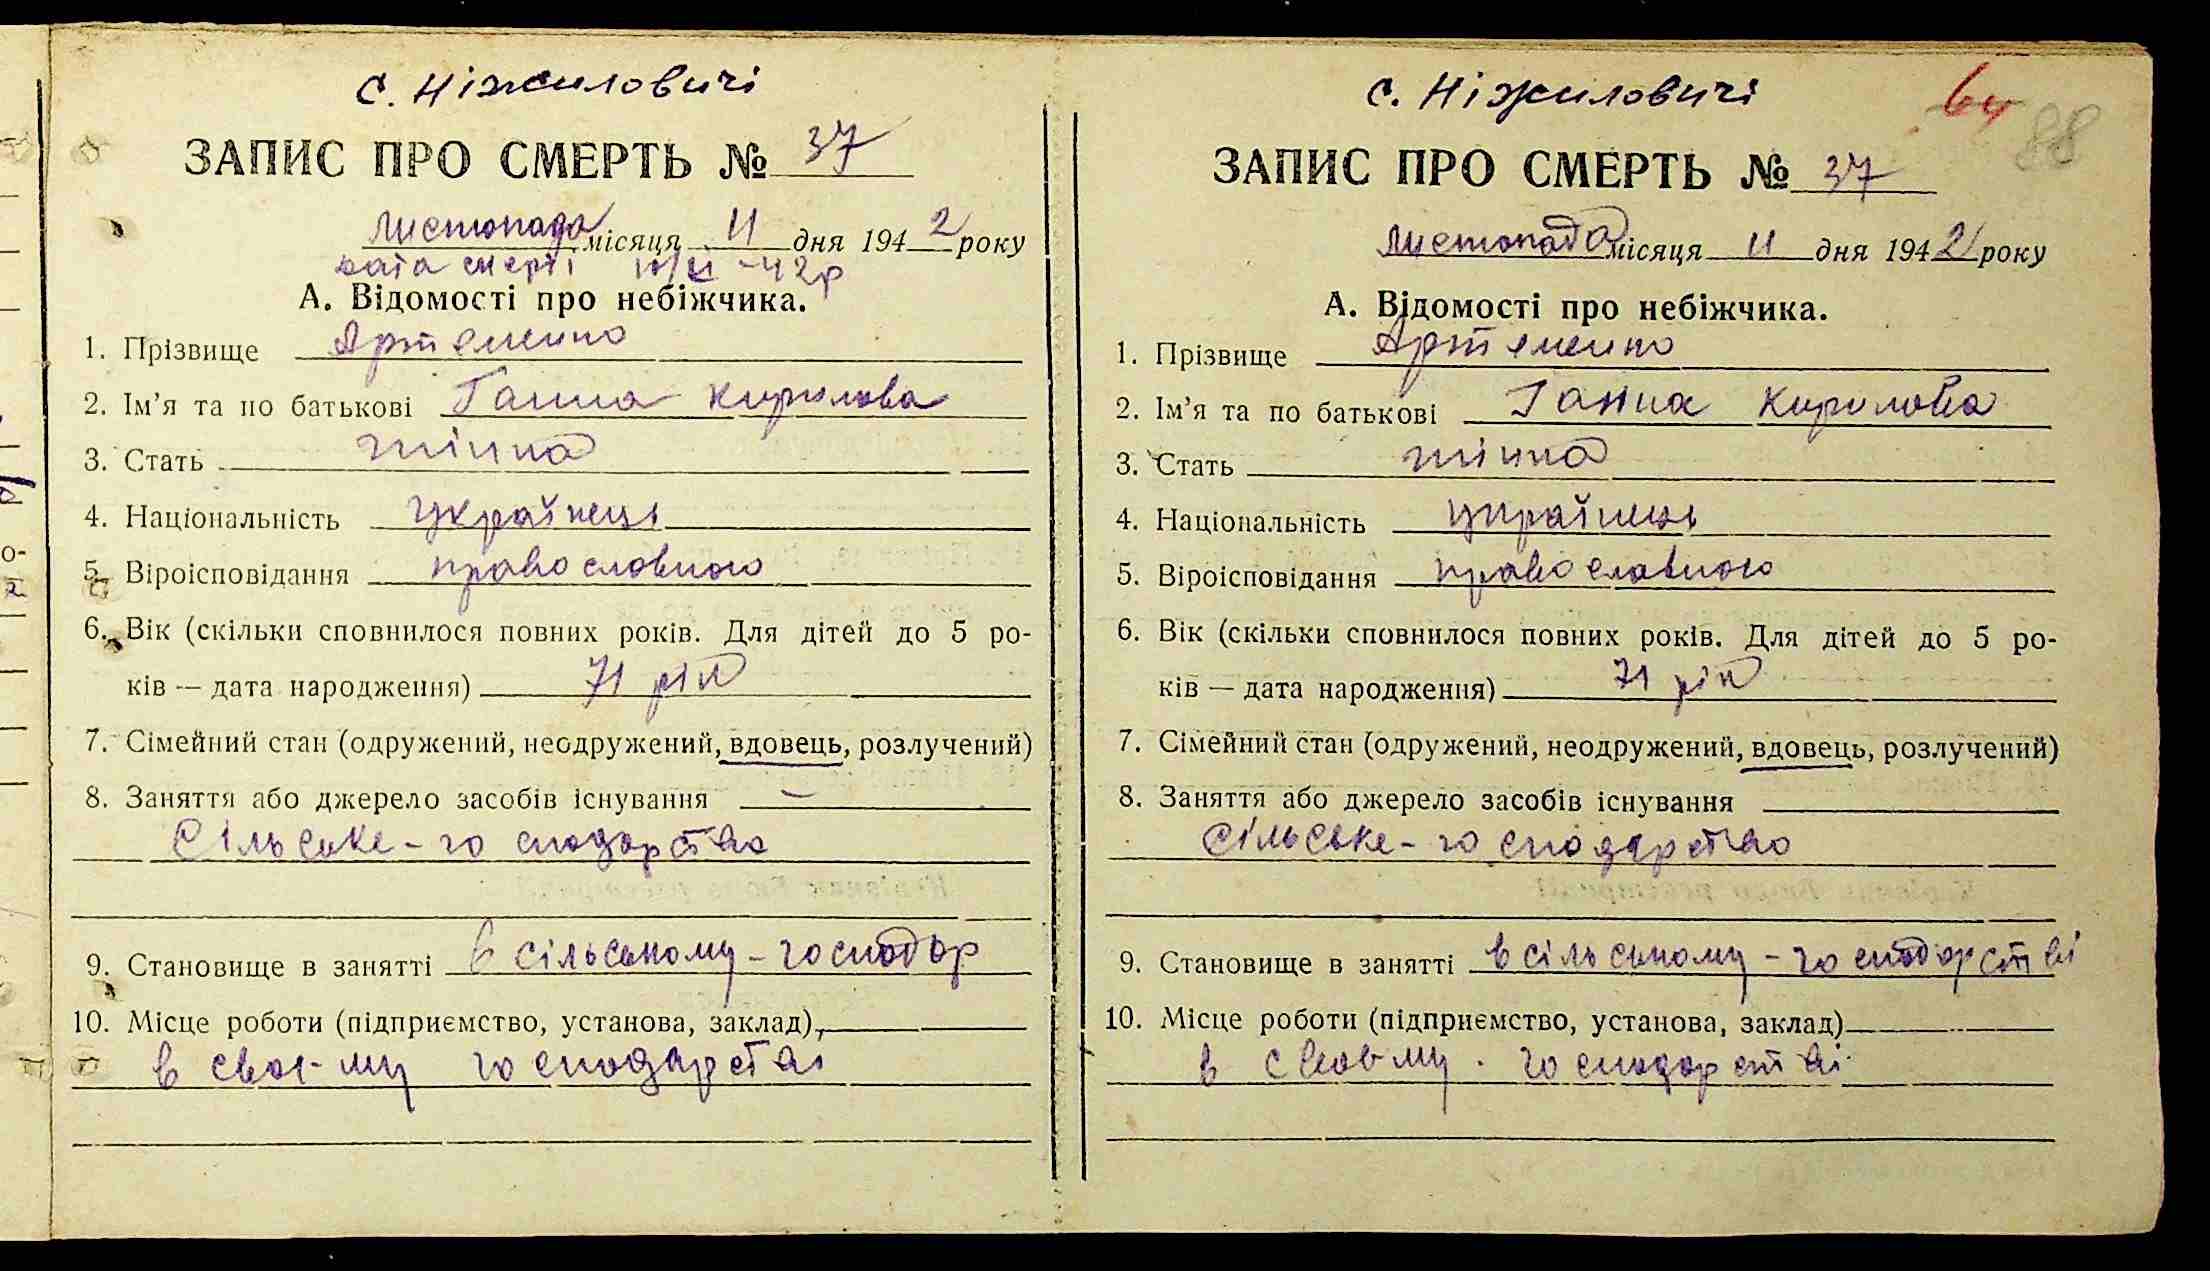 с. Ніжиловичі
ЗАПИС ПРО СМЕРТЬ № 37
листопада місяця 11 дня 1942 року
дата смерті 10/XI - 42 р
А. Відомості про небіжчика.
1. Прізвище Артеменко
2. Ім’я та по батькові Ганна Кирилова
3. Стать жінка
4. Національність українець
5. Віроісповідання православного
6. Вік (скільки сповнилося повних років. Для дітей до 5 ро-
ків — дата народження) 71 рік
7. Сімейний стан (одружений, неодружений, вдовець, розлучений)
8. Заняття або джерело засобів існування —
Сільське - господарство
9. Становище в занятті в сільському - господар
10. Місце роботи (підприємство, установа, заклад),
в своє-му господарстві
с. Ніжиловичі
64
88
ЗАПИС ПРО СМЕРТЬ № 37
листопада місяця 11 дня 1942 року
А. Відомості про небіжчика.
1. Прізвище Артеменко
2. Ім’я та по батькові Ганна Кирилова
3. Стать жінка
4. Національність українець
5. Віроісповідання православного
6. Вік (скільки сповнилося повних років. Для дітей до 5 ро-
ків — дата народження) 71 рік
7. Сімейний стан (одружений, неодружений, вдовець, розлучений)
8. Заняття або джерело засобів існування
сільське - господарство
9. Становище в занятті в сільському - господарстві
10. Місце роботи (підприємство, установа, заклад)
в господарстві